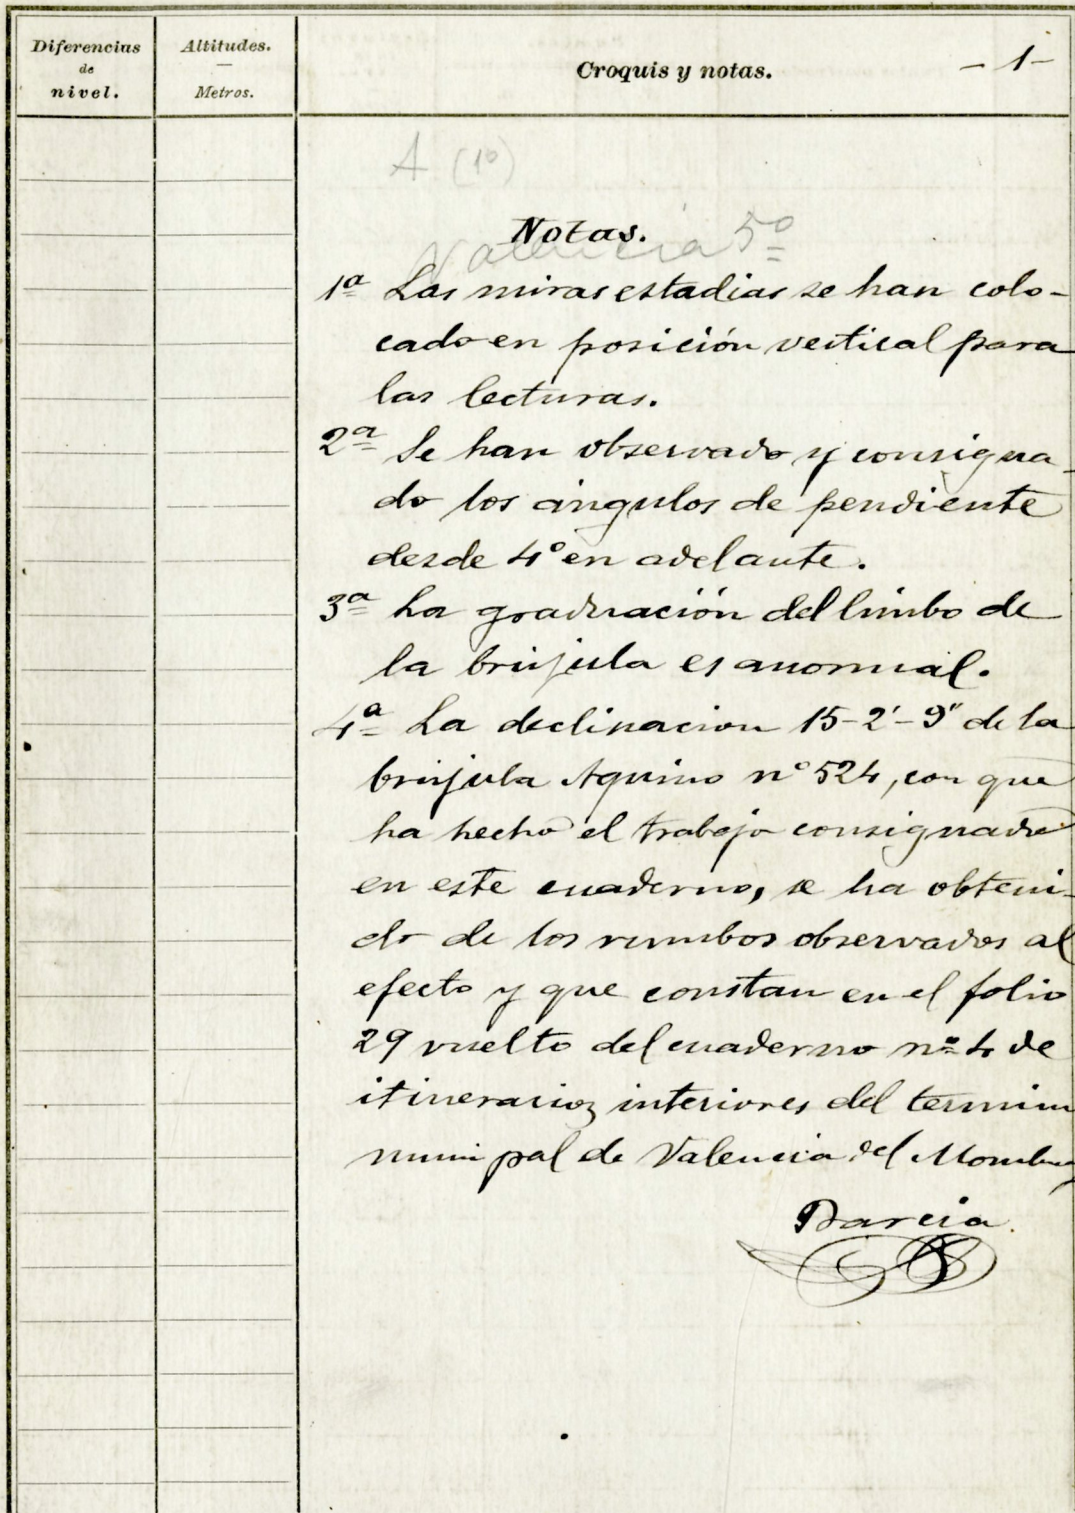 Diferencias
de
nivel.
Altitudes.
Metros.
Croquis y notas.
- 1 -
A (1º)
Notas.
Valencia 5º
1ª Las miras estadias se han colo-
cado en posición vertical para
las lecturas.
2ª Se han observado y consigna-
do los ángulos de pendiente
desde 4º en adelante.
3ª La graduación del limbo de
la brújula es anormal.
4ª La declinacion 15-2'-9" de la
brújula Aquino nº 524, con que
ha hecho el trabajo consignado
en este cuaderno, se ha obteni-
do de los rumbos observados al
efecto y que constan en el folio
29 vuelto del cuaderno nº 4 de
itinerarios interiores del termino
municipal de Valencia del Mombuey
Barcia.